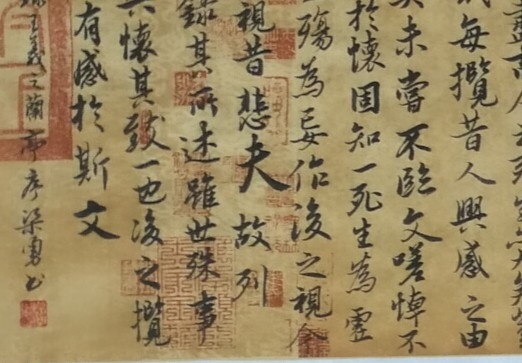 每攬昔人興感之由
未嘗不臨文嗟悼不
於懷固知一死生為虛
殤為妄作後之視今
視昔悲夫故列
錄其所述雖世殊事
懷其致一也後之攬
有感於斯文
王羲之蘭亭序梁勇书